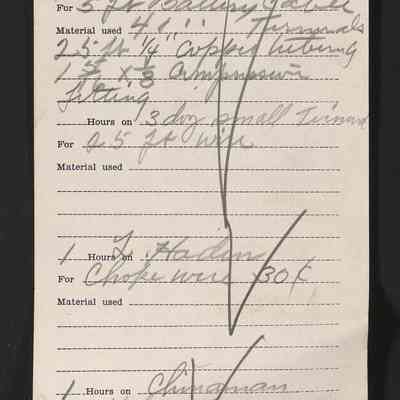 For 5 ft Battery Cable
Material used 4 " " Terminals
25 ft 1/4 Copper tubing
1 5/8 x 1/8 Compression
fitting
Hours on 3 doz small Terminal
For 25 ft wire
Material used
1 Hours on L. Haden
For Choke wire 30¢
Material used
1 Hours on Chinaman